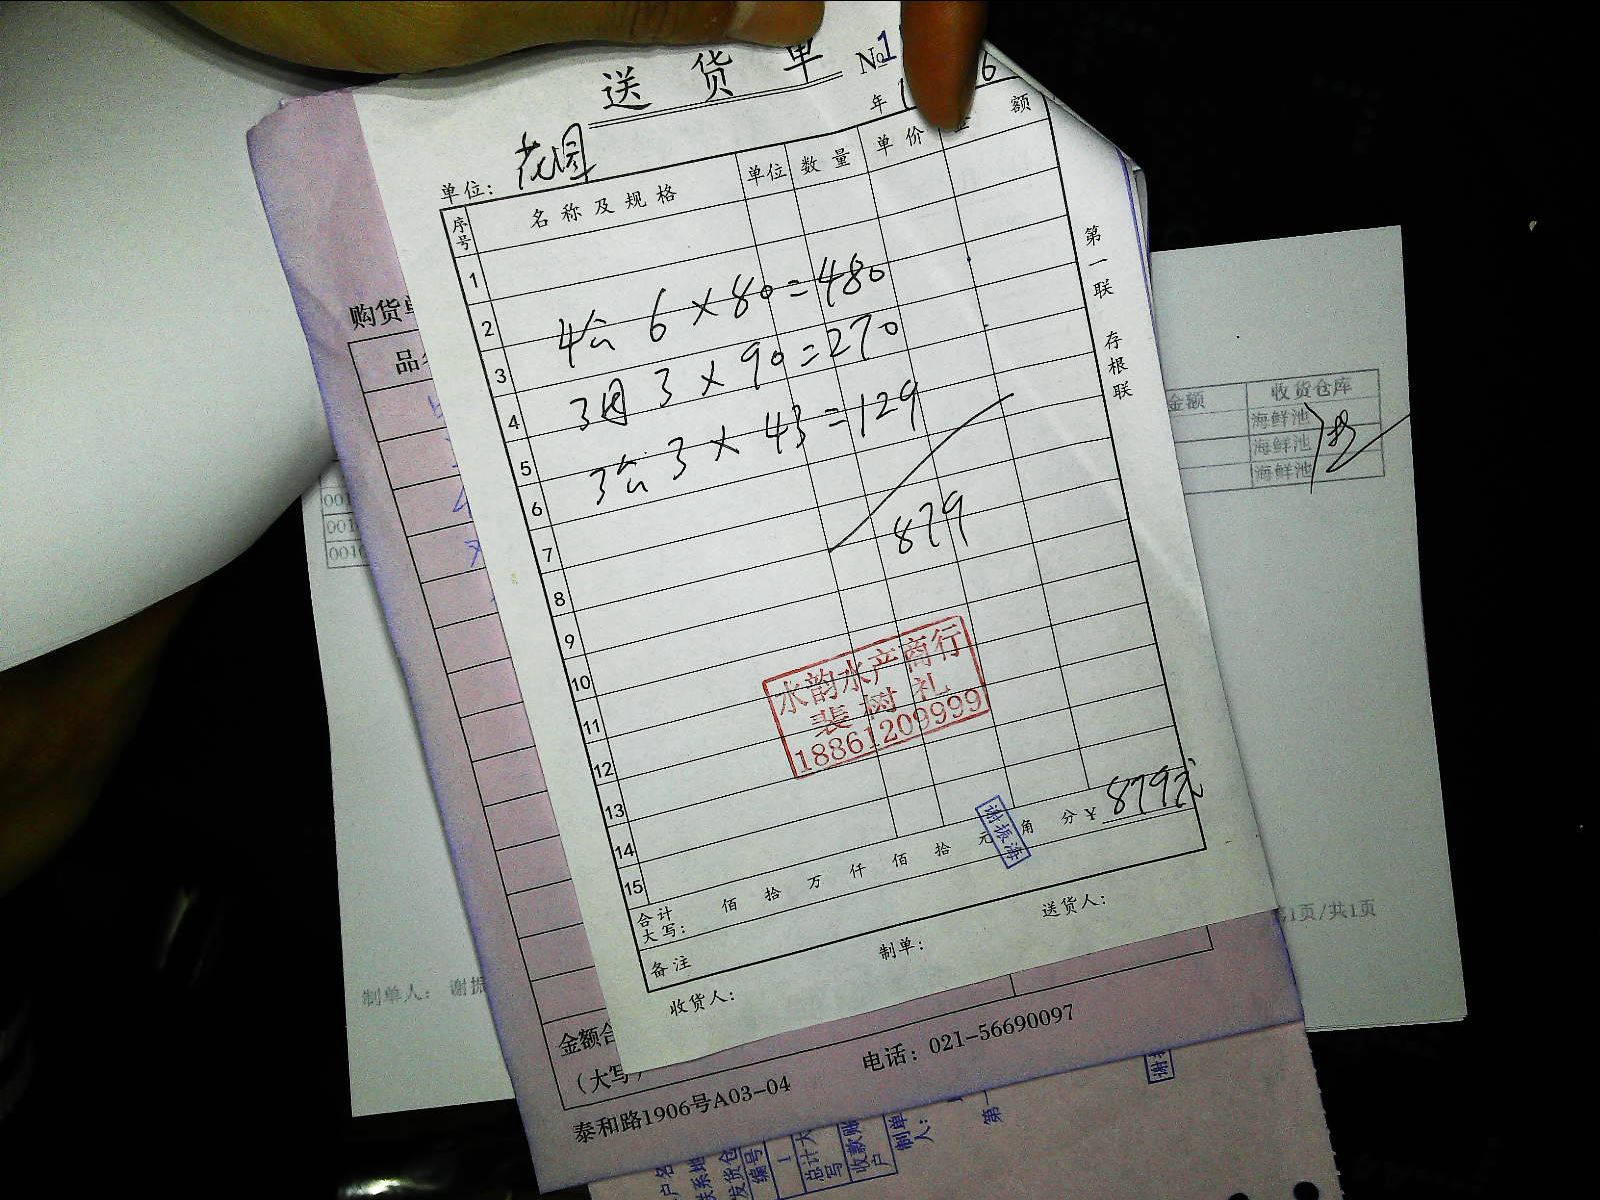 送 货 单 №1
年 1 6
单位: 花园
序号 名称及规格 单位 数量 单价 金额
1
2 4公 6×80=480
3 3母 3×90=270
4 3公 3×43=129
5
6
7 879
8
9
10
11
12
13
14
15
水韵水产商行
裴树礼
18861209999
合计大写: 佰 拾 万 仟 佰 拾 元 角 分 ¥ 879元
谢振海
备注
收货人: 制单: 送货人:
第一联 存根联
购货单
金额 收货仓库
海鲜池
海鲜池
海鲜池
001
001
0010
第1页/共1页
制单人: 谢振
金额合
(大写)
泰和路1906号A03-04 电话: 021-56690097
编号
1
总计大写
收款账户
制单人:
第一